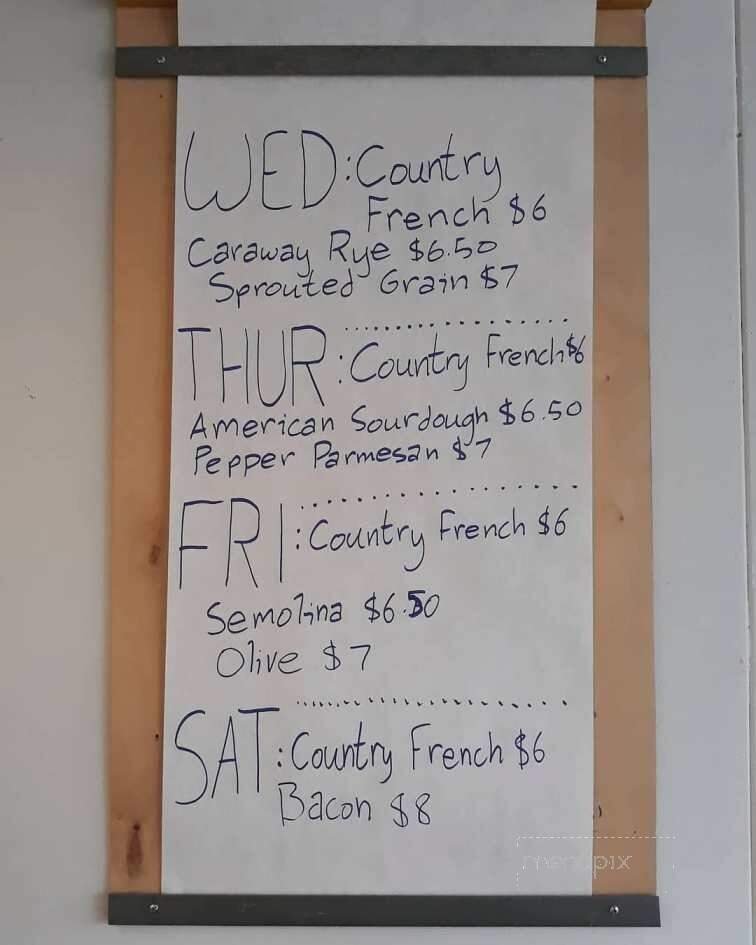 WED: Country
French $6
Caraway Rye $6.50
Sprouted Grain $7
THUR: Country French $6
American Sourdough $6.50
Pepper Parmesan $7
FRI: Country French $6
Semolina $6.50
Olive $7
SAT: Country French $6
Bacon $8
menupix